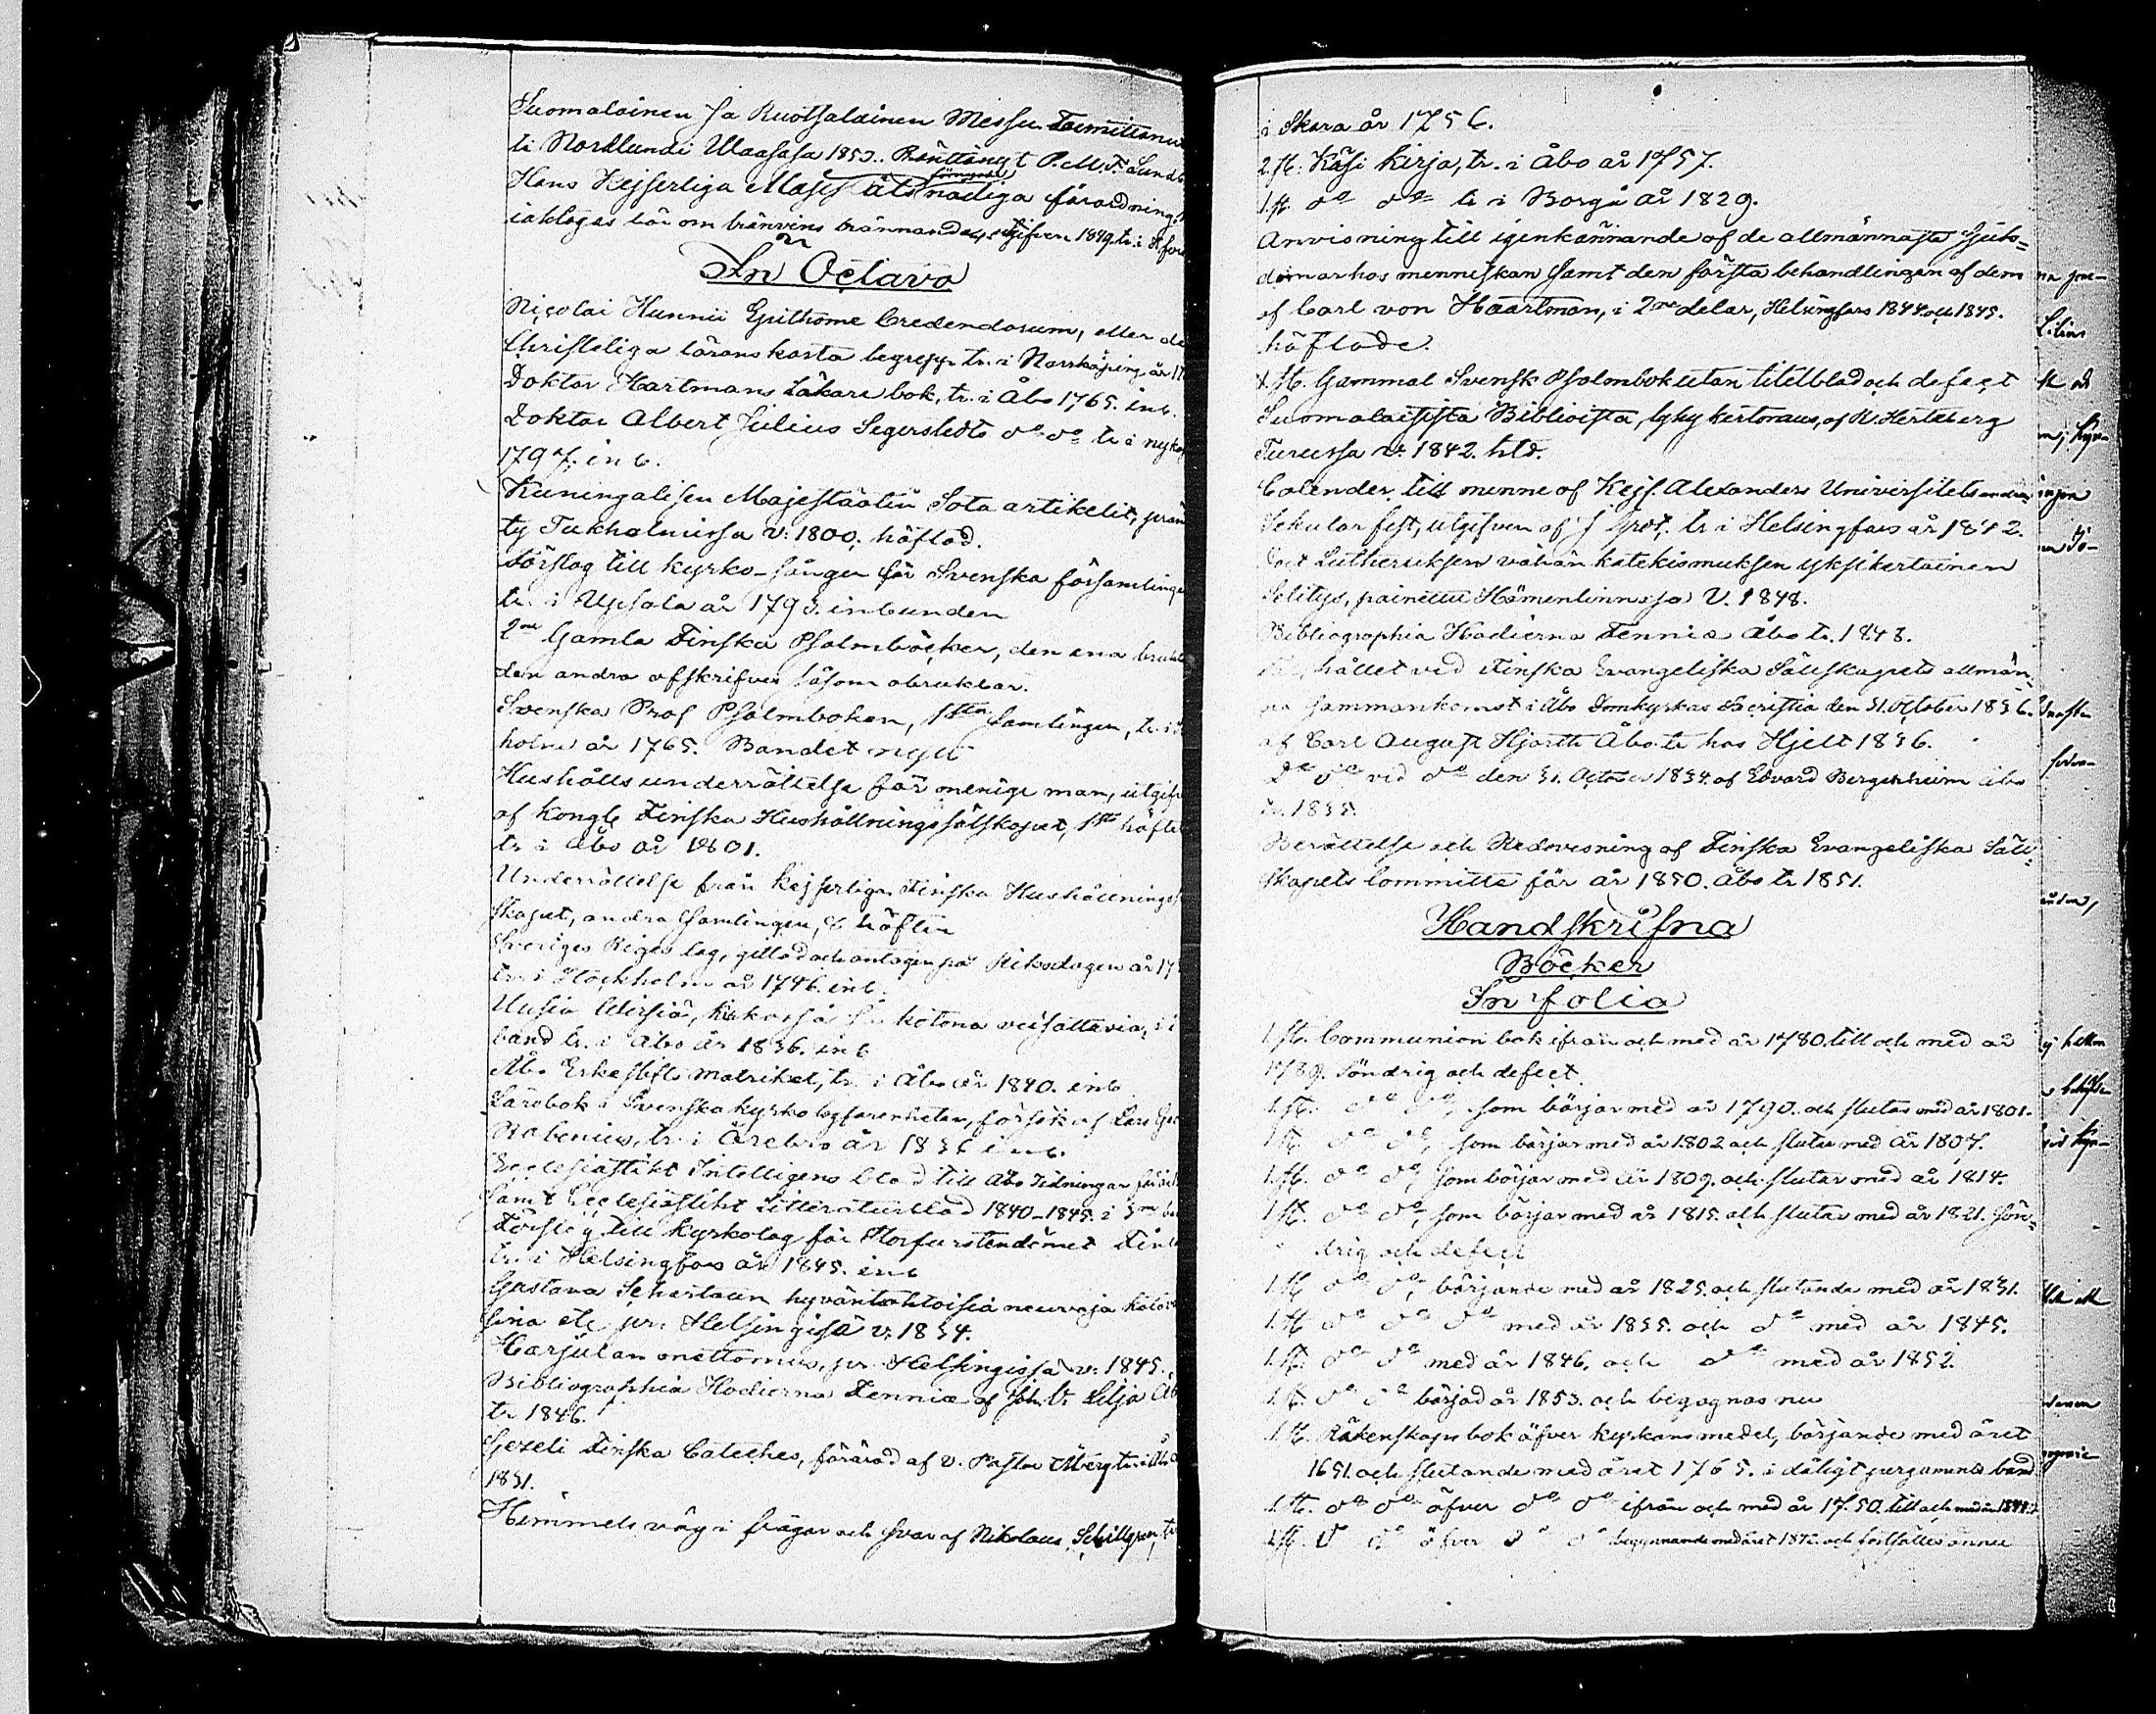 Suomalainen Ja Ruotsalainen Messu Toimittanu
ti Norrlundi Waasasa 1853. Präntänyt P. M. F. Lundb
Hans Kejserliga Majs förnyade nådiga förordning
iakttagas bör om bränvins brännande, utgifven 1849. tr. i H.fors
In Octavo
Nicolai Hunnii Epithome Credendorum, eller de
Christeliga lärans korta begrepp tr. i Norrköping år 17
Doktor Hartmans Läkare bok, tr. i Åbo 1765. inb.
Doktor Albert Julius Segerstedts do do tr. i nykö
1797. inb.
Kuningalisen Majestäätin Sota artikelit, prän
ty Tukholmissa v: 1800. häftad.
Förslag till kyrko-sånger för Svenska församlinge
tr. i Upsala år 1793. inbunden
2ne Gamla Finska Psalmböcker, den ena brukb
den andra afskrifven såsom obrukbar.
Svenska Prof Psalmboken, 1sta Samlingen, tr. i S
holm år 1765. Bandet nytt
Hushålls underrättelse för menige man, utgifv
af Kongl. Finska Hushållningssälskapet, 1sta häftet
tr. i Åbo år 1801.
Underrättelse från Kejserliga Finska Hushållnings
skapet, andra Samlingen, 6 häften
Sveriges Rikes lag, gillad och antagen på Riksdagen år 17
tr. i Stockholm år 1746. inb.
Uusia Wirsiä, kirkossa ja kotona veisattavia, i 1
band tr. i Åbo år 1836. inb
Åbo Erkestifts Matrikel, tr. i Åbo år 1840. inb
Lärobok i Svenska kyrko lagfarenheten, försök af Lars G
Rabenius, tr. i Örebro år 1836 inb.
Ecclesiastikt Intelligens blad till Åbo Tidningar för år
samt Ecclesiastikt Litteraturblad 1840-1845. i 3ne ba
Förslag till kyrkolag för Storfurstendömet Finl
tr. i Helsingfors år 1845. inb
Gustava Schartaun hyväntahtoisia neuvoja
sina etc pr. Helsingisä v. 1834.
Harjulan onnettomus, pr. Helsingissä v. 1845.
Bibliographia Hodierna Fenniæ af Joh. W. Lilja Åb
tr 1846.
Gezeli Finska Cateches, förärad af v. Pastor Åberg tr. i Åbo
1831.
Himmels väg i frågor och svar af Nikolaus, tr
i Skara år 1756.
2. st: Käsi kirja, tr. i Åbo år 1757.
1. st. do do tr i Borgå år 1829.
Anvisning till igenkännande af de allmännaste sjuk=
domar hos menniskan samt den första behandlingen af dem
af Carl von Haartman, i 2ne delar, Helsingfors 1844. och 1845.
häftade.
1. st. Gammal Svensk Psalmbok utan titelblad och defect
Suomalaisista Biblioista, lyhy kertomus, af R. Hertzberg
Turussa v: 1842. htd.
Calender till minne af Kejs. Alexanders Universitets andra
Sekularfest, utgifven af J Grot. tr. i Helsingfors år 1842.
Lutheruksen vähän katekismuksen yksikertainen
Selitys, painettu Hämenlinnassa V. 1848.
Bibliographia Hodierna Fenniæ Åbo tr. 1848.
hållet vid Finska Evangeliska Sällskapets allmän=
na sammankomst i Åbo Domkyrkas Sacristia den 31. October 1836.
af Carl August Hjorth Åbo. tr hos Hjelt 1836.
Do do vid do den 31. October 1834. af Edvard Bergenheim Åbo
tr. 1835.
Berättelse och Redovisning af Finska Evangeliska Säll=
skapets Committe för år 1850. Åbo tr 1851.
Handskrifna
Böcker
In folio
1. st. Communion bok ifrån och med år 1780. till och med år
1789. Söndrig och defect.
1. st. do do, som börjar med år 1790. och slutar med år 1801.
1. st. do do, som börjar med år 1802 och slutar med år 1807.
1. st. do do, som börjar med år 1809. och slutar med år 1814.
1. st. do do, som börjar med år 1815. och slutar med år 1821. Sön=
drig och defect
1. st do do, börjande med år 1825. och slutande med år 1831.
1. st do do do med år 1835. och do med år 1845.
1. st. do do med år 1846. och do med år 1852.
1. st. do do börjad år 1853. och begagnas nu
1. st. Räkenskaps bok öfver kyrkans medel, börjande med året
1651. och slutande med året 1765. i dåligt pergaments band
1. st. do do öfver do do ifrån och med år 1750. till och med år 1841.
1. st. do do öfver do do begynnande med året 1842. och fortsättes ännu